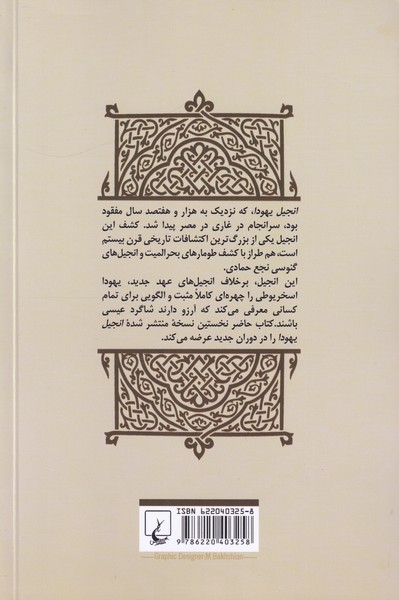 انجیل یهودا، که نزدیک به هزار و هفتصد سال مفقود
بود، سرانجام در غاری در مصر پیدا شد. کشف این
انجیل یکی از بزرگ‌ترین اکتشافات تاریخی قرن بیستم
است، هم طراز با کشف طومارهای بحرالمیت و انجیل‌های
گنوسی نجع حمادی.
این انجیل، برخلاف انجیل‌های عهد جدید، یهودا
اسخریوطی را چهره‌ای کاملاً مثبت و الگویی برای تمام
کسانی معرفی می‌کند که آرزو دارند شاگرد عیسی
باشند. کتاب حاضر نخستین نسخهٔ منتشر شدهٔ انجیل
یهودا را در دوران جدید عرضه می‌کند.
ISBN 622040325-8
9 786220 403258
Graphic Designer M.Bakhshian